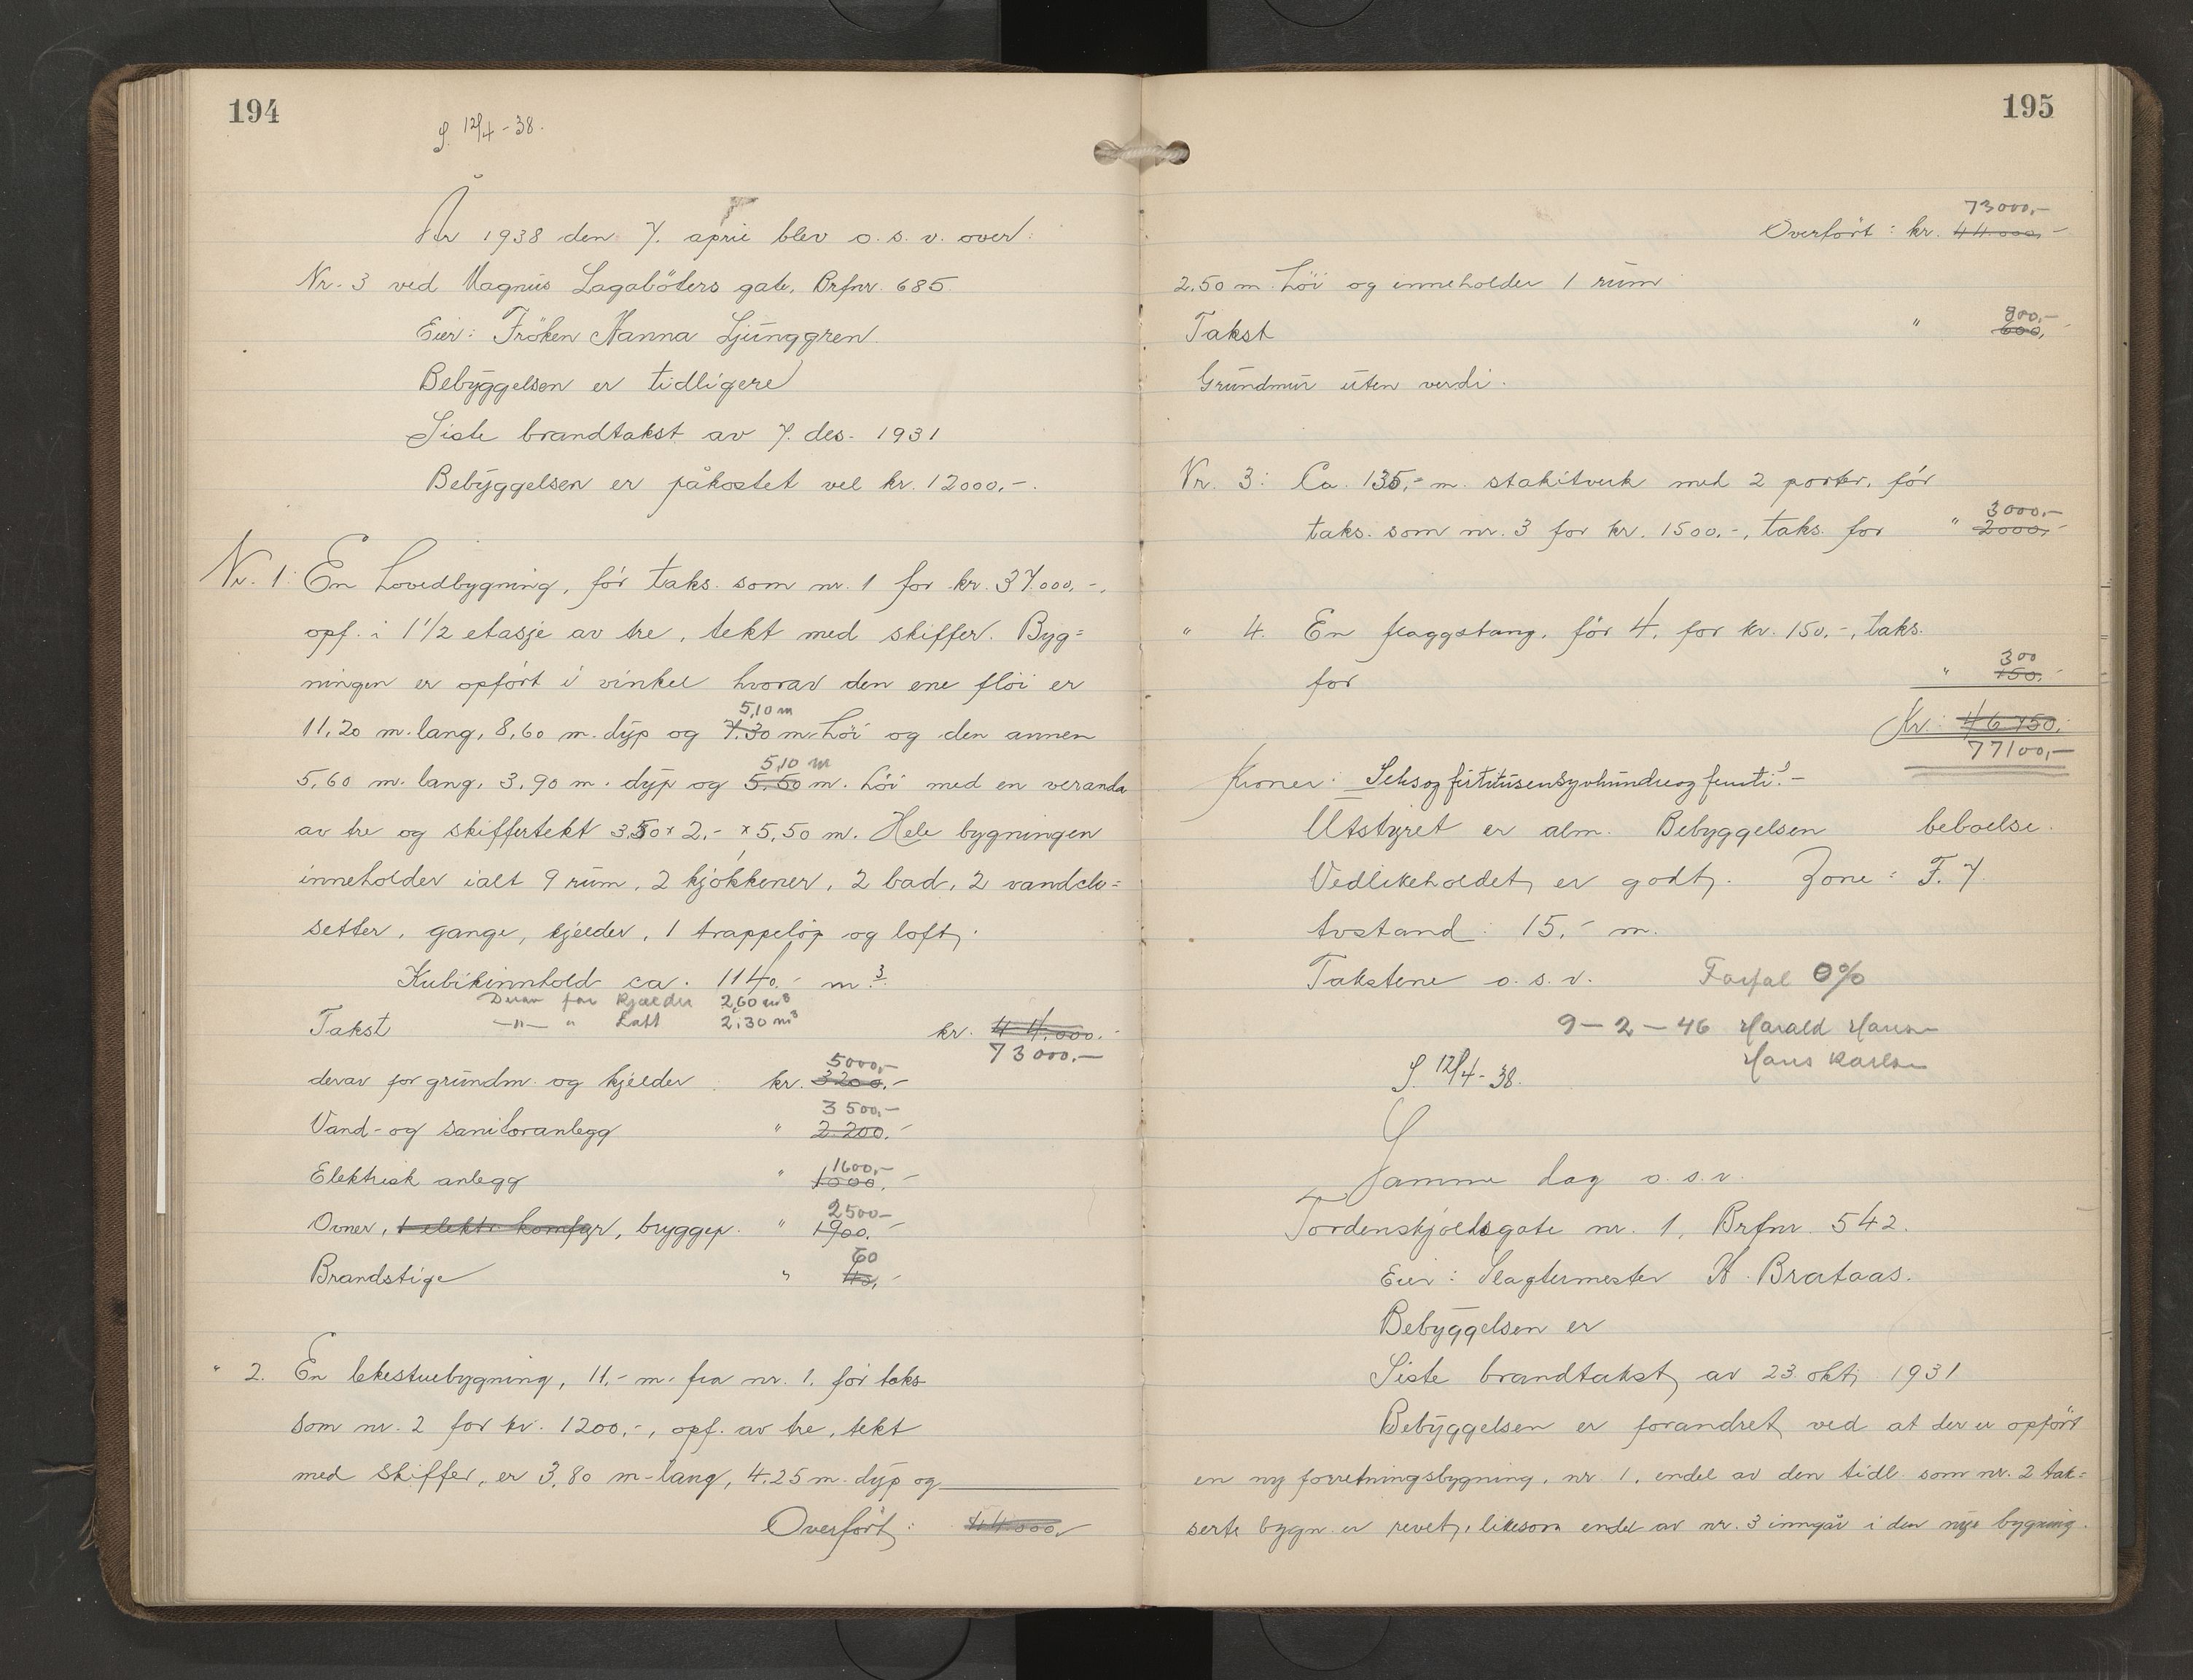 194
S. 12/4-38.
År 1938 den 7. april blev o. s. v. over:
Nr. 3 ved Magnus Lagabøters gate, Brfnr. 685
Eier: Frøken Nanna Ljunggren.
Bebyggelsen er tidligere
Siste brandtakst av 7. des. 1931
Bebyggelsen er påkostet vel kr. 12000,-.
Nr. 1: En hovedbygning, før taks. som nr. 1 for kr. 37.000,-,
opf. i 1 1/2 etasje av tre, tekt med skiffer. Byg=
ningen er opført i vinkel hvorav den ene fløi er
5,10 m
11,20 m. lang, 8,60 m. dyp og 7,30 m. høi og den annen
5,10 m
5,60 m. lang, 3,90 m. dyp og 5,50 m. høi med en veranda
av tre og skiffertekt 3,50 x 2,- x 5,50 m. Hele bygningen
inneholder ialt 9 rum, 2 kjøkkener, 2 bad, 2 vandclo=
setter, gange, kjelder, 1 trappeløp og loft.
Kubikinnhold ca. 1140.- m3.
Derav for Kjælder 2,60 m3
-"- " Loft 2,30 m3
Takst kr. 44.000.-
73000,-
5000,-
derav for grundm. og kjelder kr. 3200.-
3500,-
Vand- og sanitæranlegg " 2.200.-
1600,-
Elektrisk anlegg " 1000.-
2500-
Ovner, 1 elektr. komfyr, bryggep. " 1900.-
60
Brandstige " 40,-
" 2. En lekestuebygning, 11,- m. fra nr. 1, før taks
som nr. 2 for kr. 1200,-, opf. av tre, tekt
med skiffer, er 3,80 m. lang, 4,25 m. dyp og
Overført: 44.000,-
195
73000,-
Overført: kr. 44.000,-
2,50 m. høi og inneholder 1 rum
800,-
Takst " 600,-
Grundmur uten verdi.
Nr. 3: Ca. 135,- m. stakitverk med 2 porter, før
3000,-
taks. som nr. 3 for kr. 1500.-, taks. for " 2000,-
" 4. En flaggstang, før 4, for kr. 150,-, taks.
300
for " 150,-
Kr. 46.750,-
77100,-
Kroner: Seksogførtitusensyvhundreogfemti!-
Utstyret er alm. Bebyggelsen beboelse.
Vedlikeholdet er godt. Zone: F. 7
Avstand: 15,- m.
Takstene o. s. v. Forfal 0%
9-2-46 Harald Hansen
Hans Karlsen
S. 12/4-38.
Samme dag o. s. v.
Tordenskjoldsgate nr. 1, Brfnr. 542.
Eier: Slagtermester H. Brataas.
Bebyggelsen er
Siste brandtakst av 23. okt. 1931
Bebyggelsen er forandret ved at der er opført
en ny forretningsbygning, nr. 1, endel av den tidl. som nr. 2 tak=
serte bygn. er revet, likesom endel av nr. 3 inngår i den nye bygning.